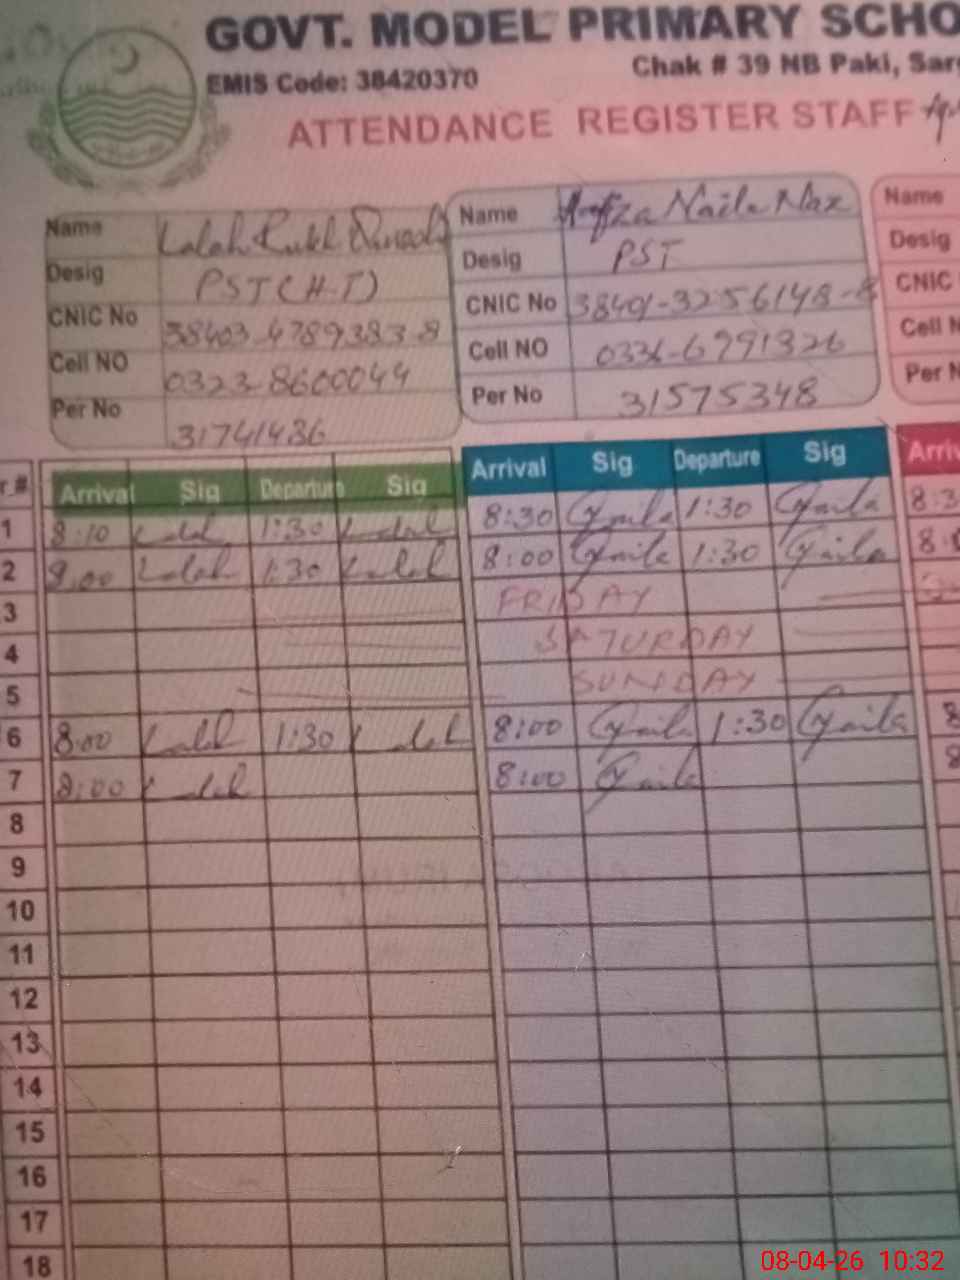 GOVT. MODEL PRIMARY SCHO
EMIS Code: 38420370
Chak # 39 NB Paki, Sarg
ATTENDANCE REGISTER STAFF
Name Lalah Rukh
Desig PST (H-T)
CNIC No 38403-4789383-8
Cell NO 0323-8600044
Per No 31741486
Name Hafiza Naila Naz
Desig PST
CNIC No 38401-3256148-8
Cell NO 0336-6791326
Per No 31575348
Name
Desig
CNIC
Cell N
Per N
r # Arrival Sig Departure Sig Arrival Sig Departure Sig Arriv
1 8:10 Lalah 1:30 Lalah 8:30 Naila 1:30 Naila 8:3
2 8:00 Lalah 1:30 Lalah 8:00 Naila 1:30 Naila 8:0
3 FRIDAY
4 SATURDAY
5 SUNDAY
6 8:00 Lalah 1:30 Lalah 8:00 Naila 1:30 Naila 8
7 8:00 Lalah 8:00 Naila 8
8
9
10
11
12
13
14
15
16
17
18
08-04-26 10:32